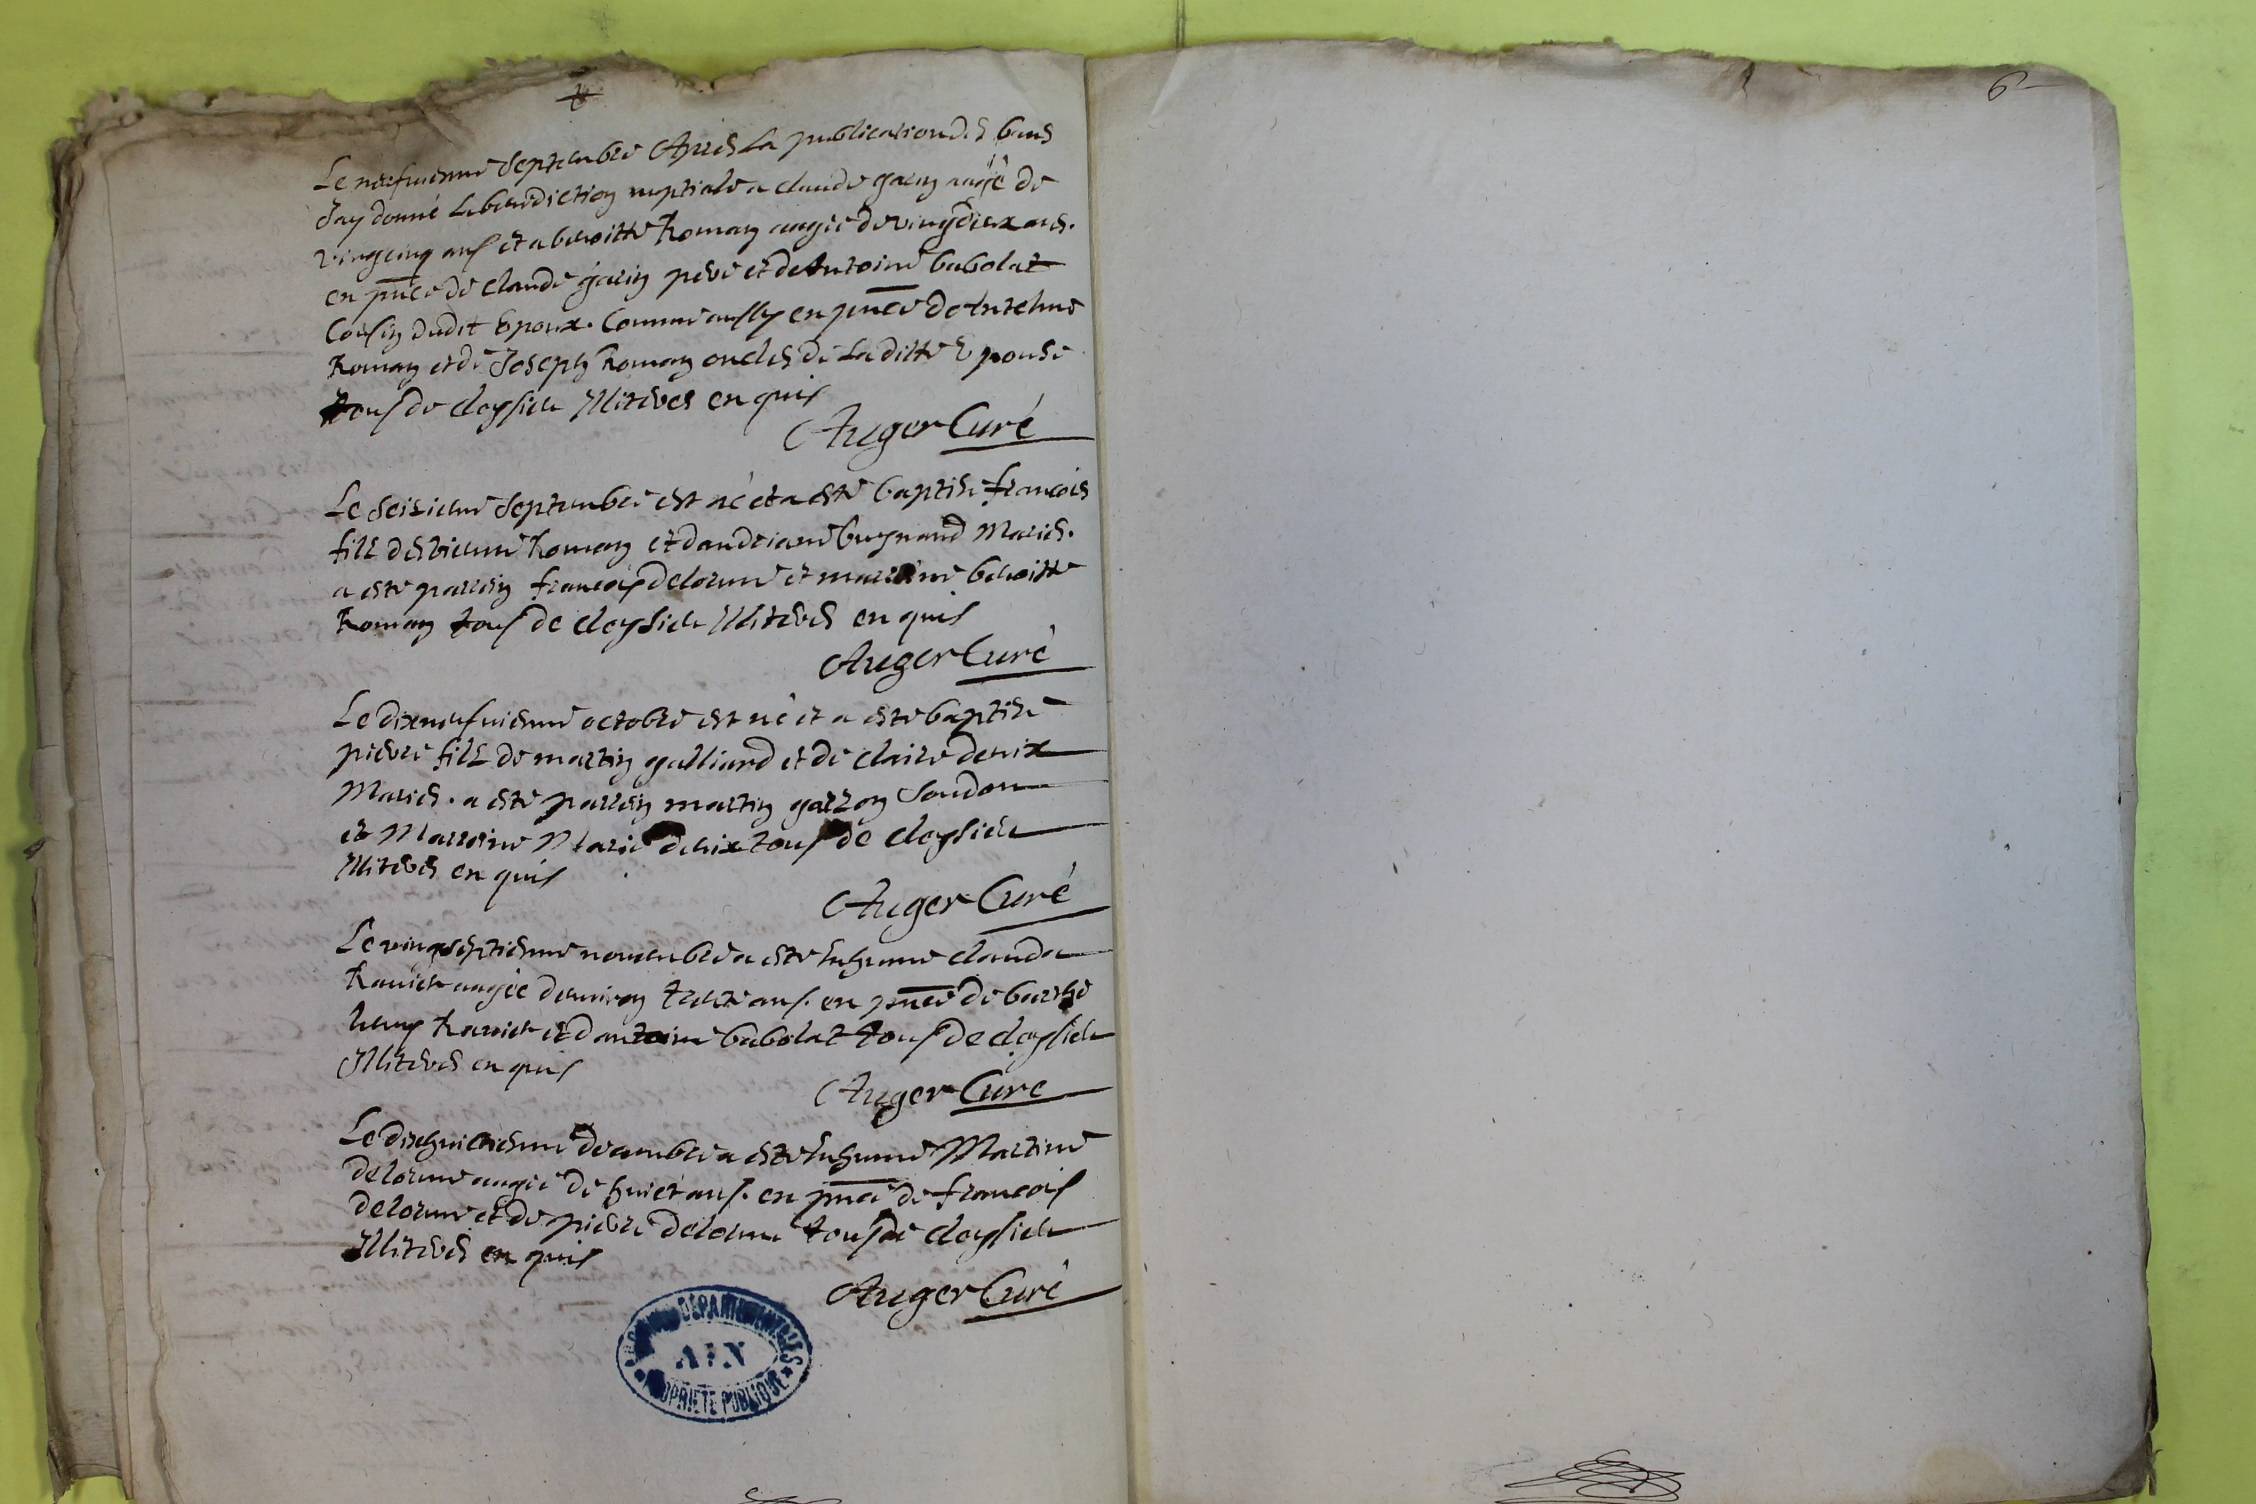 Le neufuiesme septembre Apres La publication des bans
Jay donné La benediction nuptiale a claude garin aagé de
vingcinq ans et a benoitte Roman aagée de vingdeux ans.
en pnce de claude garin pere et de Antoine babolat
Cousin dudit Epoux. Comme aussy en pnce de Antelme
Roman et de Joseph Roman oncles de La ditte Epouse
tous de cleysieu Illiteres en quis
Auger Curé
Le seisieme septembre est né et a esté baptisé francois
fils destienne Roman et dandreane bugnand Mariés.
a esté parrein francois delorme et marreine benoitte
Roman tous de cleysieu Illiteres en quis
Auger Curé
Le dixneufuiesme octobre est né et a esté baptisé
pierre fils de martin galliard et de claire denix
Mariés. a esté parrein martin garzon
et Marreine Marie denix tous de cleysieu
Illiteres en quis
Auger Curé
Le vingseptiesme nouembre a esté Inhumé claude
Rauier aagée denuiron treize ans. en pnce de barthe
lemy Rauier et dantoine babolat tous de cleysieu
Illiteres en quis
Auger Curé
Le dixhuictiesme decembre a esté Inhumé Martine
delorme aagée de huict ans. en pnce de francois
delorme et de pierre delorme tous de cleysieu
Illiteres en quis
Auger Curé
ARCHIVES DÉPARTEMENTALES
AIN
PROPRIÉTÉ PUBLIQUE
6